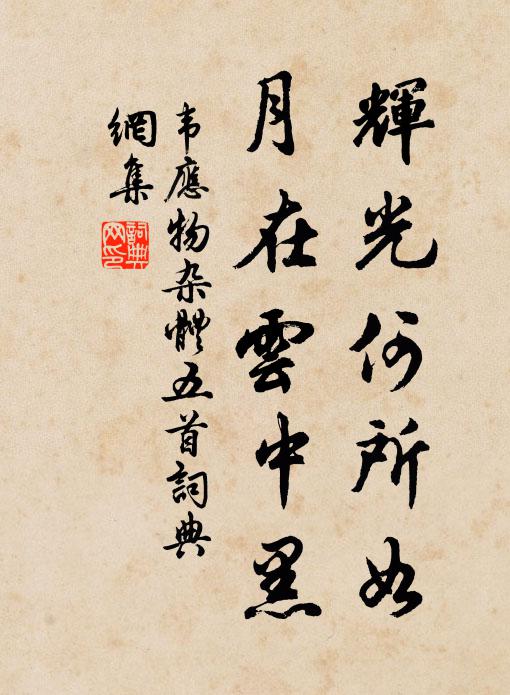 輝光何所如
月在雲中黑
韦應物杂體五首詞典
網集
詞典
网印